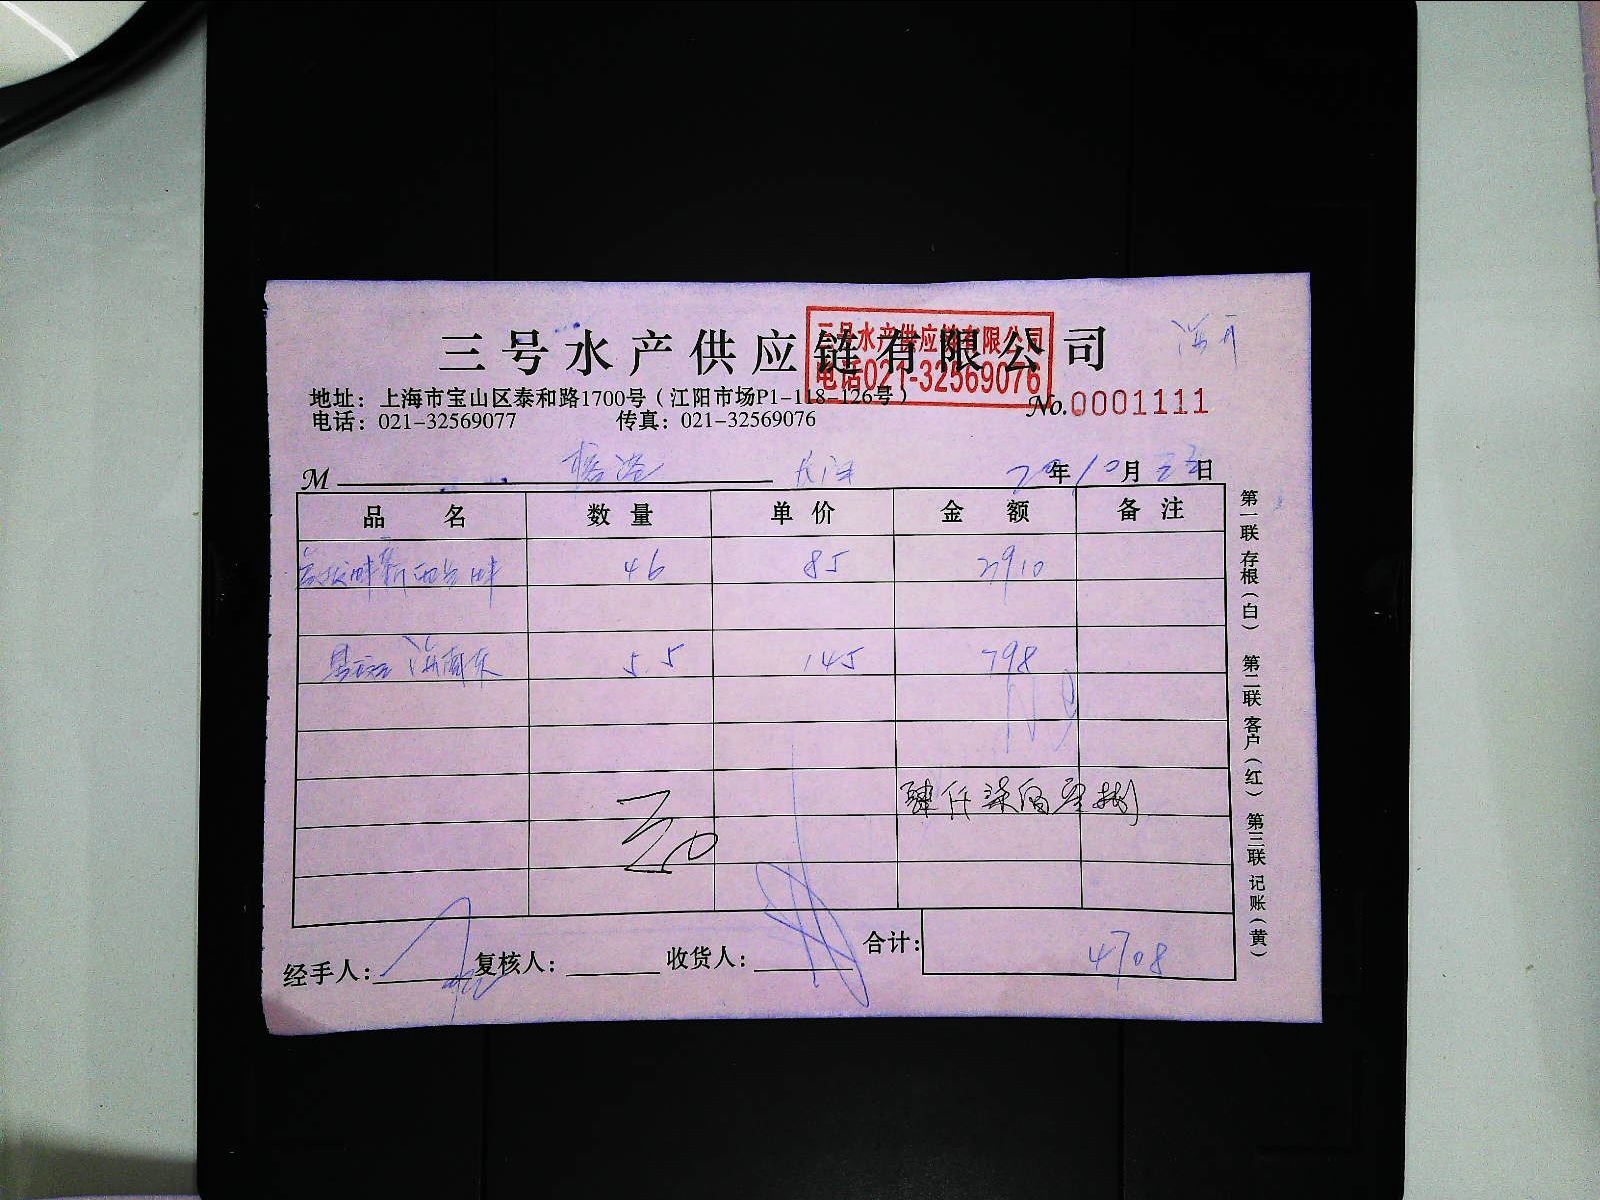 三号水产供应链有限公司
三号水产供应链有限公司
电话021-32569076
地址：上海市宝山区泰和路1700号（江阳市场P1-118-126号）
No.0001111
电话：021-32569077 传真：021-32569076
M 年10月 日
品名 数量 单价 金额 备注
46 85 3910
5.5 145 798
肆仟柒佰零捌
经手人： 复核人： 收货人： 合计：4708
第一联 存根（白） 第二联 客户（红） 第三联 记账（黄）